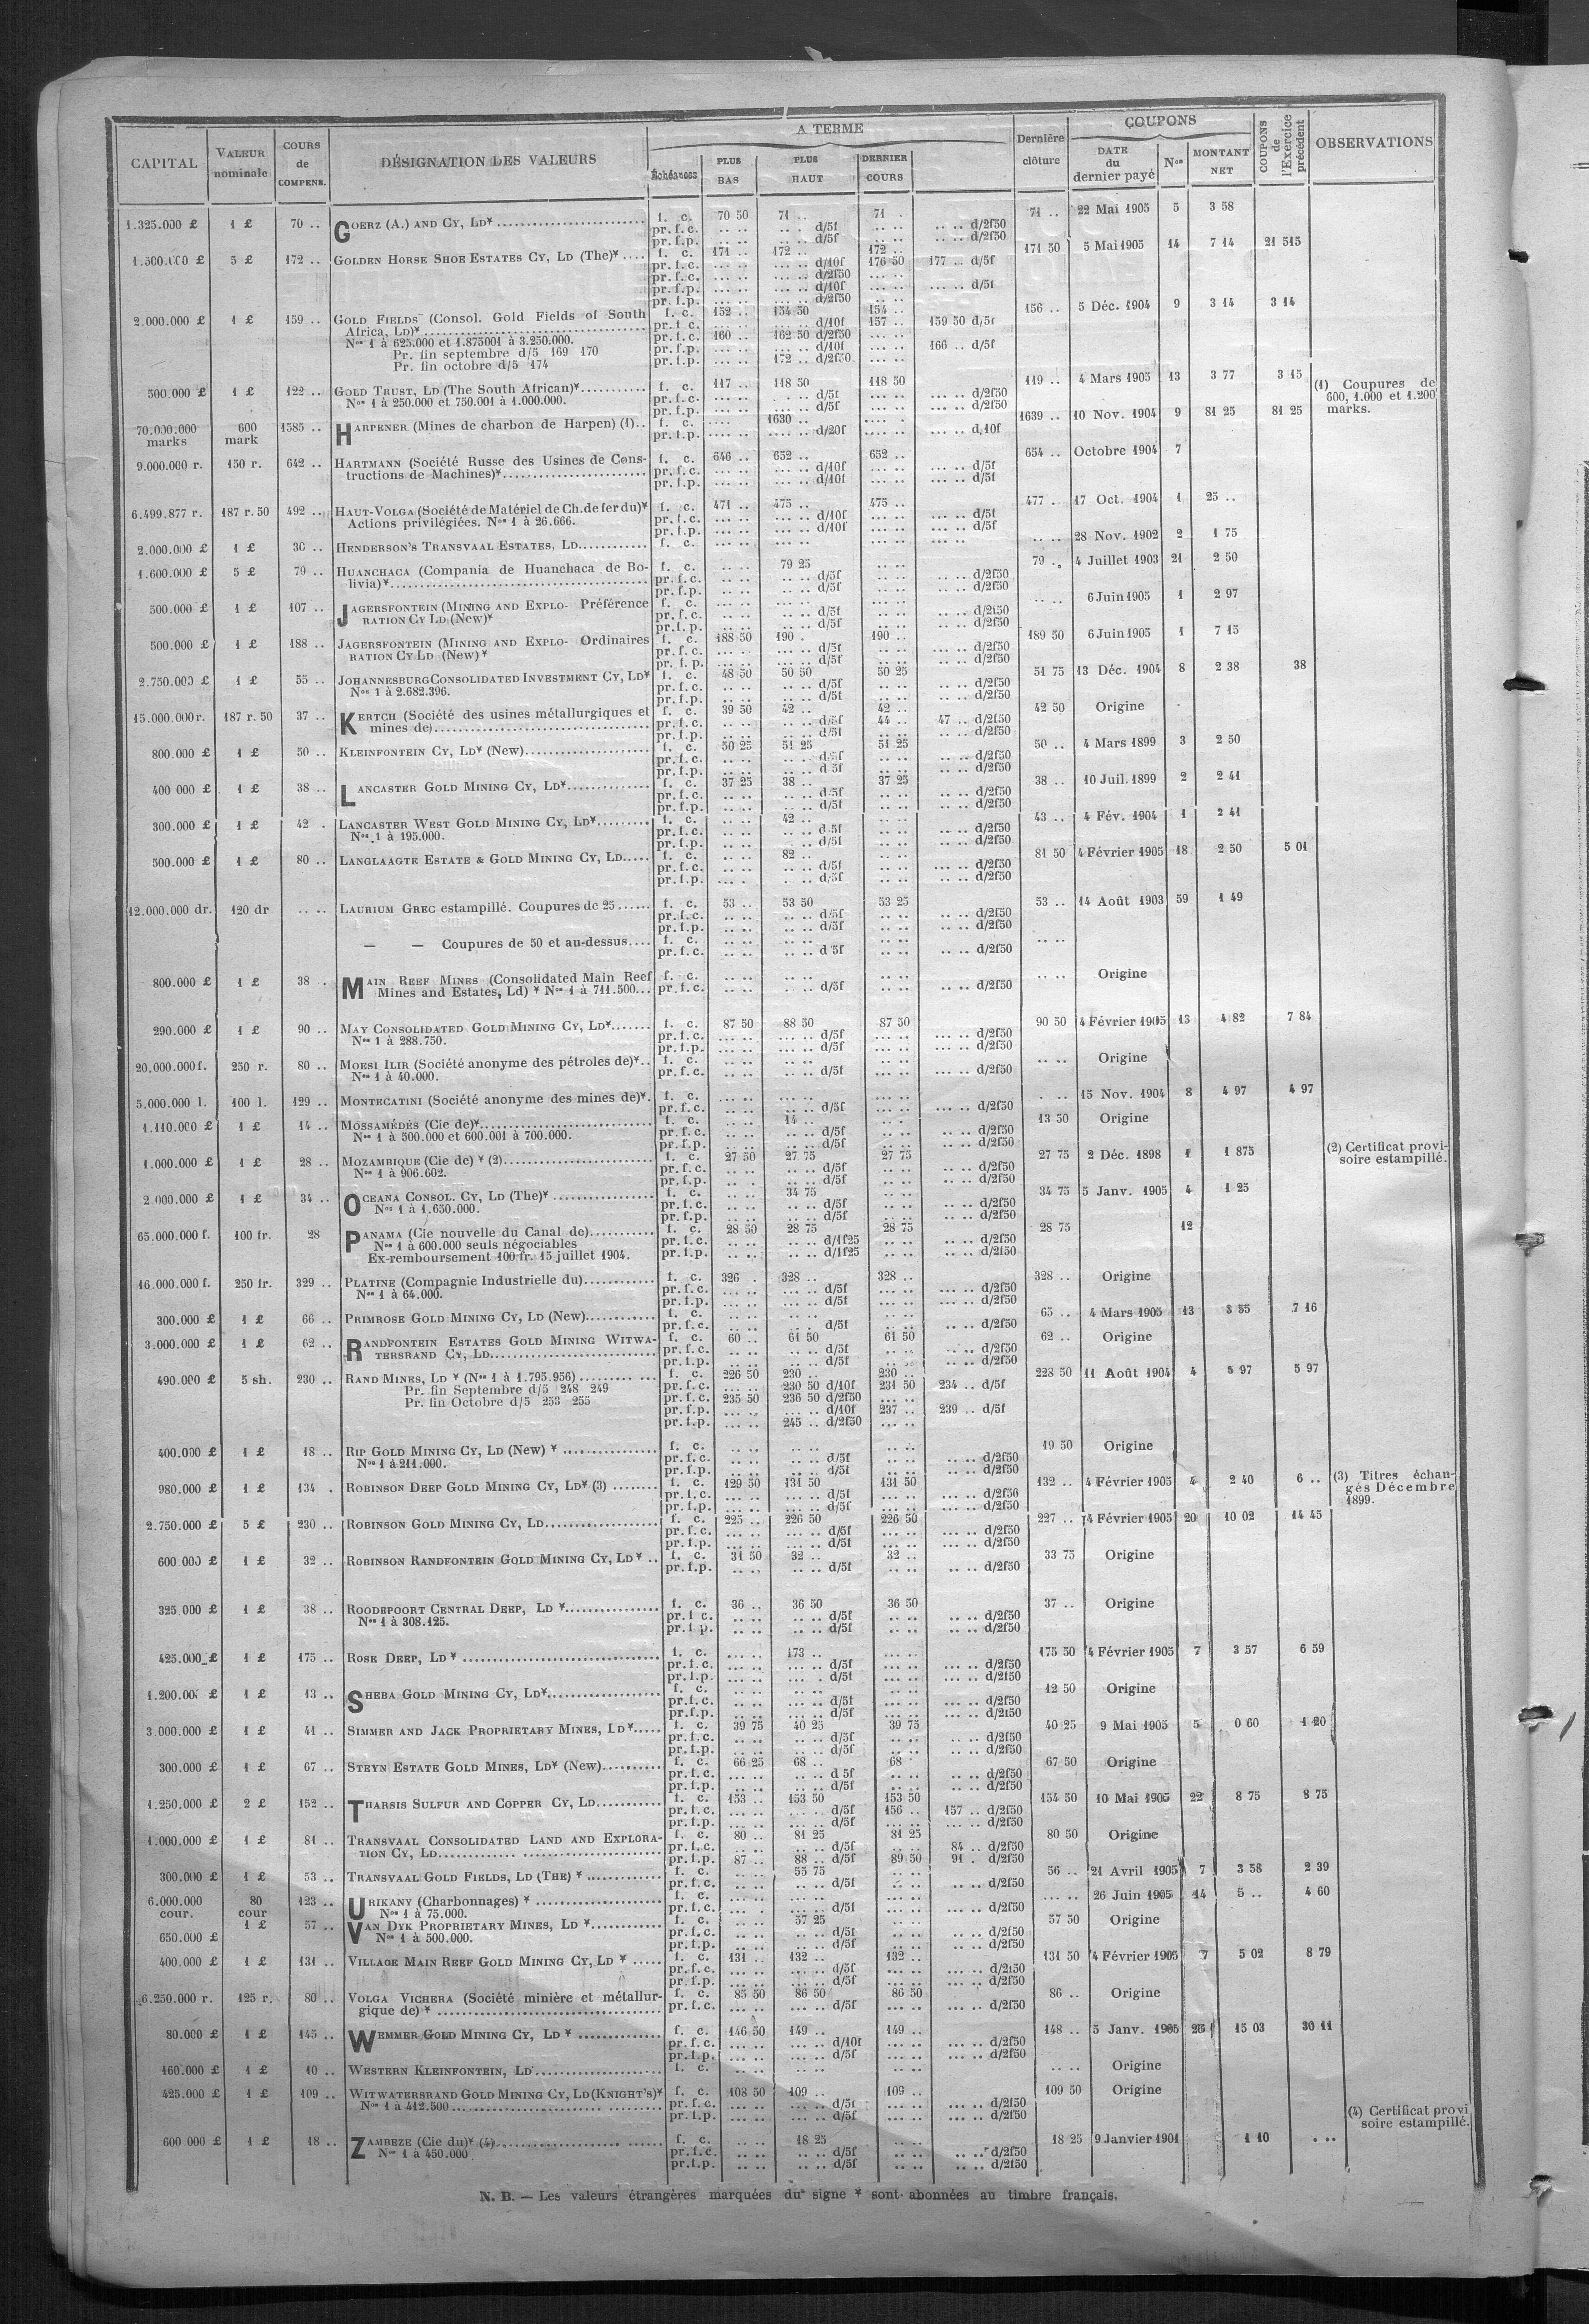 CAPITAL
VALEUR nominale
COURS de COMPENS.
DÉSIGNATION DES VALEURS
A TERME
Échéances
PLUS BAS
PLUS HAUT
DERNIER COURS
Dernière clôture
COUPONS
DATE du dernier payé
Nos
MONTANT NET
COUPONS de l'Exercice précédent
OBSERVATIONS
1.325.000 £ 1 £ 70 .. GOERZ (A.) AND CY, LD* f. c. 70 50 71 .. 71 . 71 .. 22 Mai 1905 5 3 58
pr. f. c. .. .. .. . d/5f .. .. .. .. d/2f50
pr. f. p. .. .. .. . d/5f .. .. .. .. d/2f50
1.500.000 £ 5 £ 172 .. GOLDEN HORSE SHOE ESTATES CY, LD (The)* f. c. 171 .. 172 .. 172 .. 171 50 5 Mai 1905 14 7 14 21 515
pr. f. c. ... .. ... .. d/10f 176 50 177 .. d/5f
pr. f. c. ... .. ... .. d/2f50 ... ..
pr. f. p. ... .. ... .. d/10f ... .. ... .. d/5f
pr. f. p. ... .. ... .. d/2f50
2.000.000 £ 1 £ 159 .. GOLD FIELDS (Consol. Gold Fields of South f. c. 152 .. 154 50 154 .. 156 .. 5 Déc. 1904 9 3 14 3 14
Africa, LD)* pr. f. c. ... .. ... .. d/10f 157 .. 159 50 d/5f
Nos 1 à 625.000 et 1.875001 à 3.250.000. pr. f. c. 160 .. 162 50 d/2f50 ... ..
Pr. fin septembre d/5 169 170 pr. f. p. ... .. ... .. d/10f ... .. 166 .. d/5f
Pr. fin octobre d/5 174 pr. f. p. ... .. 172 .. d/2f50 ... ..
500.000 £ 1 £ 122 .. GOLD TRUST, LD (The South African)* f. c. 117 .. 118 50 118 50 119 .. 4 Mars 1905 13 3 77 3 15 (1) Coupures de
Nos 1 à 250.000 et 750.001 à 1.000.000. pr. f. c. ... .. d/5f ... .. d/2f50 600, 1.000 et 1.200
pr. f. p. ... .. d/5f ... .. d/2f50 marks.
70.000.000 marks 600 mark 1585 .. HARPENER (Mines de charbon de Harpen) (1) f. c. .... 1630 .. .... . 1639 .. 10 Nov. 1904 9 81 25 81 25
pr. f. p. .... .. .... .. d/20f .... .. ... .. d/10f
9.000.000 r. 150 r. 642 .. HARTMANN (Société Russe des Usines de Cons- f. c. 646 .. 652 .. 652 .. 654 .. Octobre 1904 7
tructions de Machines)* pr. f. c. ... .. ... .. d/10f ... .. ... .. d/5f
pr. f. p. ... .. ... .. d/10f ... .. ... .. d/5f
6.499.877 r. 187 r. 50 492 .. HAUT-VOLGA (Société de Matériel de Ch. de fer du)* f. c. 471 .. 475 .. 475 .. 477 . 17 Oct. 1904 1 25 ..
Actions privilégiées. Nos 1 à 26.666. pr. f. c. ... .. ... .. d/10f ... .. ... .. d/5f
pr. f. p. ... .. ... .. d/10f ... .. ... .. d/5f
2.000.000 £ 1 £ 30 .. HENDERSON'S TRANSVAAL ESTATES, LD f. c. ... .. ... .. ... .. .. .. 28 Nov. 1902 2 1 75
1.600.000 £ 5 £ 79 .. HUANCHACA (Compania de Huanchaca de Bo- f. c. .. .. 79 25 .. .. 79 .. 4 Juillet 1903 21 2 50
livia)* pr. f. c. .. .. .. .. d/5f .. .. .. .. d/2f50
pr. f. p. .. .. .. .. d/5f .. .. .. .. d/2f50
500.000 £ 1 £ 107 .. JAGERSFONTEIN (MINING AND EXPLO- Préférence f. c. ... .. ... .. ... .. .. .. 6 Juin 1905 1 2 97
RATION CY LD (New)* pr. f. c. ... .. ... .. d/5f ... .. ... .. d/2f50
pr. f. p. .. .. .. .. d/5f .. .. .. .. d/2f50
500.000 £ 1 £ 188 .. JAGERSFONTEIN (MINING AND EXPLO- Ordinaires f. c. 188 50 190 . 190 .. 189 50 6 Juin 1905 1 7 15
RATION CY LD (New)* pr. f. c. ... .. ... .. d/5f ... .. ... .. d/2f50
pr. f. p. ... .. ... .. d/5f ... .. ... .. d/2f50
2.750.000 £ 1 £ 55 .. JOHANNESBURG CONSOLIDATED INVESTMENT CY, LD* f. c. 48 50 50 50 50 25 51 75 13 Déc. 1904 8 2 38 38
Nos 1 à 2.682.396. pr. f. c. .. .. .. .. d/5f .. .. .. .. d/2f50
pr. f. p. .. .. .. .. d/5f .. .. .. .. d/2f50
15.000.000 r. 187 r. 50 37 .. KERTCH (Société des usines métallurgiques et f. c. 39 50 42 .. 42 .. 42 50 Origine
mines de) pr. f. c. .. .. .. .. d/5f 44 .. 47 .. d/2f50
pr. f. p. .. .. .. .. d/5f .. .. .. .. d/2f50
800.000 £ 1 £ 50 .. KLEINFONTEIN CY, LD* (New) f. c. 50 25 51 25 51 25 50 .. 4 Mars 1899 3 2 50
pr. f. c. .. .. .. .. d/5f .. .. .. .. d/2f50
pr. f. p. .. .. .. .. d 5f .. .. .. .. d/2f50
400 000 £ 1 £ 38 .. LANCASTER GOLD MINING CY, LD* f. c. 37 25 38 .. 37 25 38 .. 10 Juil. 1899 2 2 41
pr. f. c. .. .. .. .. d/5f .. .. .. .. d/2f50
pr. f. p. .. .. .. .. d/5f .. .. .. .. d/2f50
300.000 £ 1 £ 42 . LANCASTER WEST GOLD MINING CY, LD* f. c. .. .. 42 .. .. .. 43 .. 4 Fév. 1904 1 2 41
Nos 1 à 195.000. pr. f. c. .. .. .. .. d/5f .. .. .. .. d/2f50
pr. f. p. .. .. .. .. d/5f .. .. .. .. d/2f50
500.000 £ 1 £ 80 .. LANGLAAGTE ESTATE & GOLD MINING CY, LD f. c. .. .. 82 .. .. .. 81 50 4 Février 1905 18 2 50 5 01
pr. f. c. ... .. .. .. d/5f .. .. ... .. d/2f50
pr. f. p. ... . . .. d/5f .. .. .. .. d/2f50
12.000.000 dr. 120 dr .. .. LAURIUM GREC estampillé. Coupures de 25 f. c. 53 .. 53 50 53 25 53 .. 14 Août 1903 59 1 49
pr. f. c. .. .. .. .. d/5f .. .. .. .. d/2f50
pr. f. p. .. .. .. .. d/5f .. .. .. .. d/2f50
— — Coupures de 50 et au-dessus f. c. .. .. .. .. .. .. .. ..
pr. f. c. .. .. .. .. d 5f .. .. .. .. d/2f50
800.000 £ 1 £ 38 . MAIN REEF MINES (Consolidated Main Reef f. c. .. .. .. .. .. .. .. .. Origine
Mines and Estates, Ld) * Nos 1 à 711.500 pr. f. c. .. .. .. .. d/5f .. .. .. .. d/2f50
290.000 £ 1 £ 90 .. MAY CONSOLIDATED GOLD MINING CY, LD* f. c. 87 50 88 50 87 50 90 50 4 Février 1905 13 4 82 7 84
Nos 1 à 288.750. pr. f. c. ... .. .. .. d/5f ... .. ... .. d/2f50
pr. f. p. .. .. .. .. d/5f ... .. ... .. d/2f50
20.000.000 f. 250 r. 80 .. MOESI ILIR (Société anonyme des pétroles de)* f. c. .. .. .. .. .. .. .. .. Origine
Nos 1 à 40.000. pr. f. c. .. .. .. .. d/5f ... .. ... .. d/2f50
5.000.000 l. 100 l. 129 .. MONTECATINI (Société anonyme des mines de)* f. c. ... .. ... .. ... .. . .. 15 Nov. 1904 8 4 97 4 97
pr. f. c. .. .. .. .. d/5f ... .. ... .. d/2f50
1.110.000 £ 1 £ 14 .. MOSSAMÉDÈS (Cie de)* f. c. .. .. 14 .. .. . 13 50 Origine
Nos 1 à 500.000 et 600.001 à 700.000. pr. f. c. .. .. .. .. d/5f .. .. .. .. d/2f50
pr. f. p. .. .. .. .. d/5f .. .. .. .. d/2f50
1.000.000 £ 1 £ 28 .. MOZAMBIQUE (Cie de) * (2) f. c. 27 50 27 75 27 75 27 75 2 Déc. 1898 1 1 875 (2) Certificat provi-
Nos 1 à 906.602. pr. f. c. .. .. .. .. d/5f .. .. .. .. d/2f50 soire estampillé.
pr. f. p. .. .. .. .. d/5f .. .. .. .. d/2f50
2.000.000 £ 1 £ 34 .. OCEANA CONSOL. CY, LD (The)* f. c. .. .. 34 75 .. .. 34 75 5 Janv. 1905 4 1 25
Nos 1 à 1.650.000. pr. f. c. .. .. .. .. d/5f .. .. .. .. d/2f50
pr. f. p. .. .. .. .. d/5f .. .. .. .. d/2f50
65.000.000 f. 100 fr. 28 PANAMA (Cie nouvelle du Canal de) f. c. 28 50 28 75 28 75 28 75 12
Nos 1 à 600.000 seuls négociables pr. f. c. .. .. .. .. d/1f25 .. .. .. .. d/2f50
Ex-remboursement 100 fr. 15 juillet 1904. pr. f. p. .. .. .. .. d/1f25 .. .. .. .. d/2f50
16.000.000 f. 250 fr. 329 .. PLATINE (Compagnie Industrielle du) f. c. 326 . 328 .. 328 .. 328 .. Origine
Nos 1 à 64.000. pr. f. c. ... .. ... .. d/5f ... .. ... .. d/2f50
pr. f. p. ... .. ... .. d/5f ... .. ... .. d/2f50
300.000 £ 1 £ 66 .. PRIMROSE GOLD MINING CY, LD (New) f. c. .. .. .. .. .. .. 65 .. 4 Mars 1905 13 3 55 7 16
pr. f. c. .. .. .. .. d/5f .. .. .. .. d/2f50
3.000.000 £ 1 £ 62 .. RANDFONTEIN ESTATES GOLD MINING WITWA- f. c. 60 .. 61 50 61 50 62 .. Origine
TERSRAND CY, LD pr. f. c. .. .. .. .. d/5f .. .. .. .. d/2f50
pr. f. p. .. .. .. .. d/5f .. .. .. .. d/2f50
490.000 £ 5 sh. 230 .. RAND MINES, LD * (Nos 1 à 1.795.956) f. c. 226 50 230 .. 230 .. 228 50 11 Août 1904 4 5 97 5 97
Pr. fin Septembre d/5 248 249 pr. f. c. ... .. 230 50 d/10f 231 50 234 .. d/5f
Pr. fin Octobre d/5 253 255 pr. f. c. 235 50 236 50 d/2f50 ... ..
pr. f. p. ... .. ... .. d/10f 237 .. 239 .. d/5f
pr. f. p. ... .. 245 .. d/2f50 ... ..
400.000 £ 1 £ 18 .. RIP GOLD MINING CY, LD (New) * f. c. .. .. .. .. .. .. 19 50 Origine
Nos 1 à 211.000. pr. f. c. .. .. .. .. d/5f .. .. .. .. d/2f50
pr. f. p. .. .. .. .. d/5f .. .. .. .. d/2f50
980.000 £ 1 £ 134 . ROBINSON DEEP GOLD MINING CY, LD* (3) f. c. 129 50 131 50 131 50 132 .. 4 Février 1905 4 2 40 6 .. (3) Titres échan-
pr. f. c. ... .. ... .. d/5f ... .. ... .. d/2f50 gés Décembre
pr. f. p. ... .. ... .. d/5f ... .. ... .. d/2f50 1899.
2.750.000 £ 5 £ 230 .. ROBINSON GOLD MINING CY, LD f. c. 225 .. 226 50 226 50 227 .. 4 Février 1905 20 10 02 14 45
pr. f. c. ... .. ... .. d/5f ... .. ... .. d/2f50
pr. f. p. ... .. ... .. d/5f ... .. ... .. d/2f50
600.000 £ 1 £ 32 .. ROBINSON RANDFONTEIN GOLD MINING CY, LD * f. c. 31 50 32 .. 32 .. 33 75 Origine
pr. f. p. .. .. .. .. d/5f .. .. .. .. d/2f50
325.000 £ 1 £ 38 .. ROODEPOORT CENTRAL DEEP, LD * f. c. 36 .. 36 50 36 50 37 .. Origine
Nos 1 à 308.125. pr. f. c. .. .. .. .. d/5f .. .. .. .. d/2f50
pr. f. p. .. .. .. .. d/5f .. .. .. .. d/2f50
425.000 £ 1 £ 175 .. ROSE DEEP, LD * f. c. ... .. 173 .. ... .. 175 50 4 Février 1905 7 3 57 6 59
pr. f. c. ... .. ... .. d/5f ... .. ... .. d/2f50
pr. f. p. ... .. ... . d/5f ... .. ... .. d/2f50
1.200.000 £ 1 £ 13 .. SHEBA GOLD MINING CY, LD* f. c. .. .. .. .. .. .. 12 50 Origine
pr. f. c. .. .. .. .. d/5f .. .. .. .. d/2f50
pr. f. p. .. .. .. .. d/5f .. .. .. .. d/2f50
3.000.000 £ 1 £ 41 .. SIMMER AND JACK PROPRIETARY MINES, LD* f. c. 39 75 40 25 39 75 40 25 9 Mai 1905 5 0 60 1 20
pr. f. c. .. .. .. .. d/5f .. .. .. .. d/2f50
pr. f. p. .. .. .. .. d/5f .. .. .. .. d/2f50
300.000 £ 1 £ 67 .. STEYN ESTATE GOLD MINES, LD* (New) f. c. 66 25 68 .. 68 67 50 Origine
pr. f. c. ... .. .. .. d 5f .. .. .. .. d/2f50
pr. f. p. .. .. .. .. d/5f .. .. .. .. d/2f50
1.250.000 £ 2 £ 152 .. THARSIS SULFUR AND COPPER CY, LD f. c. 153 .. 153 50 153 50 154 50 10 Mai 1905 22 8 75 8 75
pr. f. c. ... .. ... .. d/5f 156 .. 157 .. d/2f50
pr. f. p. ... .. ... .. d/5f ... .. ... .. d/2f50
1.000.000 £ 1 £ 81 .. TRANSVAAL CONSOLIDATED LAND AND EXPLORA- f. c. 80 .. 81 25 81 25 80 50 Origine
TION CY, LD pr. f. c. .. .. .. .. d/5f .. .. 84 .. d/2f50
pr. f. p. 87 .. 88 .. d/5f 89 50 91 . d/2f50
300.000 £ 1 £ 53 .. TRANSVAAL GOLD FIELDS, LD (THE) * f. c. .. .. 55 75 .. .. 56 .. 21 Avril 1905 7 3 58 2 39
pr. f. c. .. .. .. .. d/5f .. .. .. .. d/2f50
6.000.000 cour. 80 cour 123 .. URIKANY (Charbonnages) * f. c. ... .. ... .. ... .. ... .. 26 Juin 1905 14 5 .. 4 60
Nos 1 à 75.000. pr. f. c. ... . ... .. d/5f ... .. ... .. d/2f50
650.000 £ 1 £ 57 .. VAN DYK PROPRIETARY MINES, LD * f. c. .. .. 57 25 .. .. 57 50 Origine
Nos 1 à 500.000. pr. f. c. .. .. .. .. d/5f .. .. .. .. d/2f50
pr. f. p. .. .. .. .. d/5f .. .. .. .. d/2f50
400.000 £ 1 £ 131 .. VILLAGE MAIN REEF GOLD MINING CY, LD * f. c. 131 .. 132 .. 132 .. 131 50 4 Février 1905 7 5 02 8 79
pr. f. c. ... .. ... .. d/5f ... .. ... .. d/2f50
pr. f. p. ... .. ... .. d/5f ... .. ... .. d/2f50
6.250.000 r. 125 r. 80 .. VOLGA VICHERA (Société minière et métallur- f. c. 85 50 86 50 86 50 86 .. Origine
gique de) * pr. f. c. ... .. ... .. d/5f ... .. ... .. d/2f50
80.000 £ 1 £ 145 .. WEMMER GOLD MINING CY, LD * f. c. 146 50 149 .. 149 .. 148 .. 5 Janv. 1905 25 15 03 30 11
pr. f. c. ... .. ... .. d/10f ... .. ... .. d/2f50
pr. f. p. ... .. ... .. d/5f ... .. ... .. d/2f50
160.000 £ 1 £ 10 .. WESTERN KLEINFONTEIN, LD f. c. .. .. .. .. .. .. .. .. Origine
425.000 £ 1 £ 109 .. WITWATERSRAND GOLD MINING CY, LD (KNIGHT'S)* f. c. 108 50 109 .. 109 .. 109 50 Origine
Nos 1 à 412.500 pr. f. c. ... .. ... .. d/5f ... .. ... .. d/2f50
pr. f. p. ... .. ... .. d/5f ... .. ... .. d/2f50 (4) Certificat provi
soire estampillé.
600 000 £ 1 £ 18 .. ZAMBEZE (Cie du)* (4) f. c. .. .. 18 25 .. .. 18 25 9 Janvier 1901 1 10 . ..
Nos 1 à 450.000 pr. f. c. .. .. .. .. d/5f .. .. .. .. d/2f50
pr. f. p. .. .. .. .. d/5f .. .. .. .. d/2f50
N. B. — Les valeurs étrangères marquées du signe * sont abonnées au timbre français.